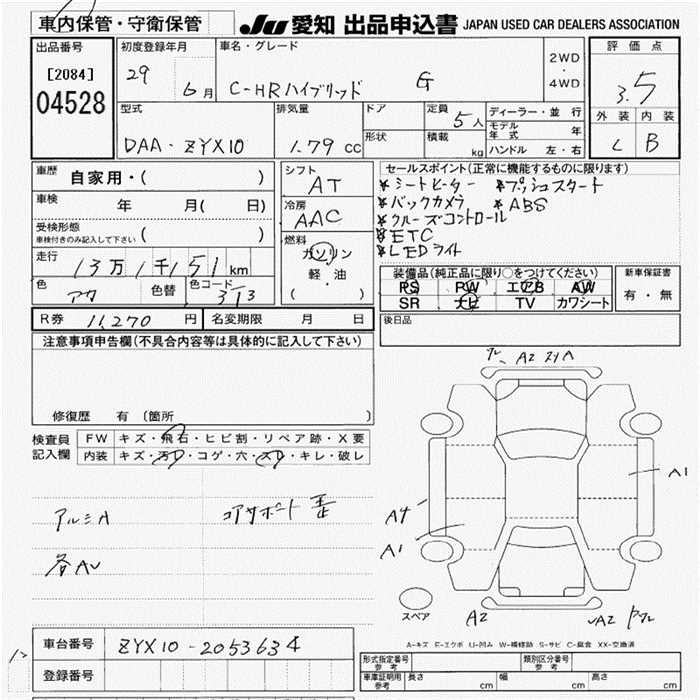 車内保管・守衛保管
JU 愛知 出品申込書 JAPAN USED CAR DEALERS ASSOCIATION
出品番号
[2084]
04528
初度登録年月
29
6月
車名・グレード
C-HRハイブリッド G
2WD
・
4WD
評価点
3.5
外装 内装
C B
型式
DAA-ZYX10
排気量
1.79 CC
ドア
形状
定員
5人
積載
kg
ディーラー・並行
モデル年式 年
ハンドル 左・右
車歴
自家用・( )
車検
年 月( 日)
受検形態
車検付きのみ記入して下さい ( )
走行
13万1千151km
色
アカ
色替
色コード
3T3
シフト
AT
冷房
AAC
燃料
ガソリン
軽・油
( )
セールスポイント(正常に機能するものに限ります)
★シートヒーター ★プッシュスタート
★バックカメラ ★ABS
★クルーズコントロール
★ETC
★LEDライト
装備品(純正品に限り○をつけてください)
PS PW エアB AW
SR ナビ TV カワシート
新車保証書
有・無
R券 11,270 円
名変期限 月 日
後日品
注意事項申告欄(不具合内容等は具体的に記入して下さい)
修復歴 有 〔箇所
検査員
記入欄
FW キズ・飛石・ヒビ割・リペア跡・X要
内装 キズ・汚れ・コゲ・穴・スレ・キレ・破レ
アルミA
コアサポート 歪
各AU
A2
A1
A4
A1
スペア
A2
A2
A-キズ E-エクボ U-凹み W-補修跡 S-サビ C-腐食 XX-交換済
車台番号
ZYX10-2053634
登録番号
形式指定番号
参考
類別区分番号
参考
車庫証明用
参考
長さ cm
幅 cm
高さ cm